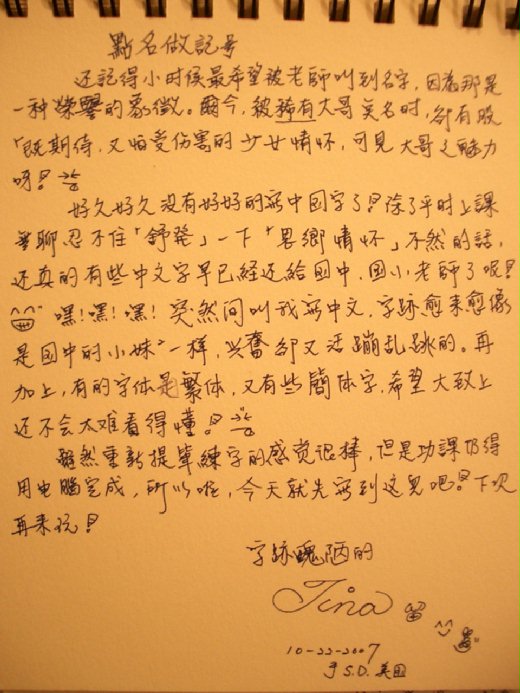 點名做記号
还記得小时候最希望被老師叫到名字，因為那是
一种榮譽的象徵。爾今，被稀有大哥点名时，卻有股
「既期待，又怕受伤害的少女情怀，可見大哥之魅力
呀！
好久好久没有好好的寫中国字了！除了平时上課
無聊忍不住「舒発」一下「異鄉情怀」不然的話，
还真的有些中文字早已經还給国中、国小老師了呢！
嘿！嘿！嘿！突然间叫我寫中文，字跡愈来愈像
是国中的小妹一样，兴奮卻又活蹦乱跳的。再
加上，有的字体是繁体，又有些簡体字，希望大致上
还不会太难看得懂！
雖然重新提筆練字的感觉很棒，但是功課仍得
用电腦完成，所以啦，今天就先寫到这兒吧！下次
再来玩！
字跡醜陋的
Tina 留
10-22-2007
于 S.D. 美国